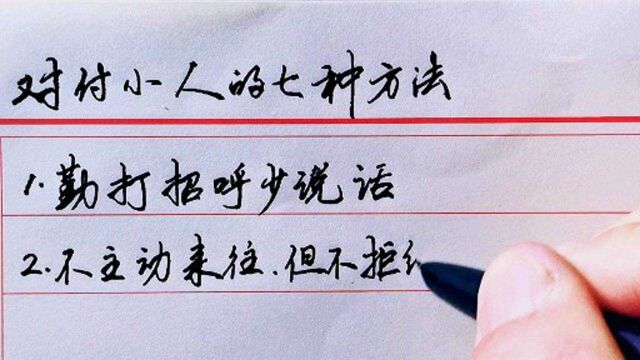 对付小人的七种方法
1.勤打招呼少说话
2.不主动来往.但不拒